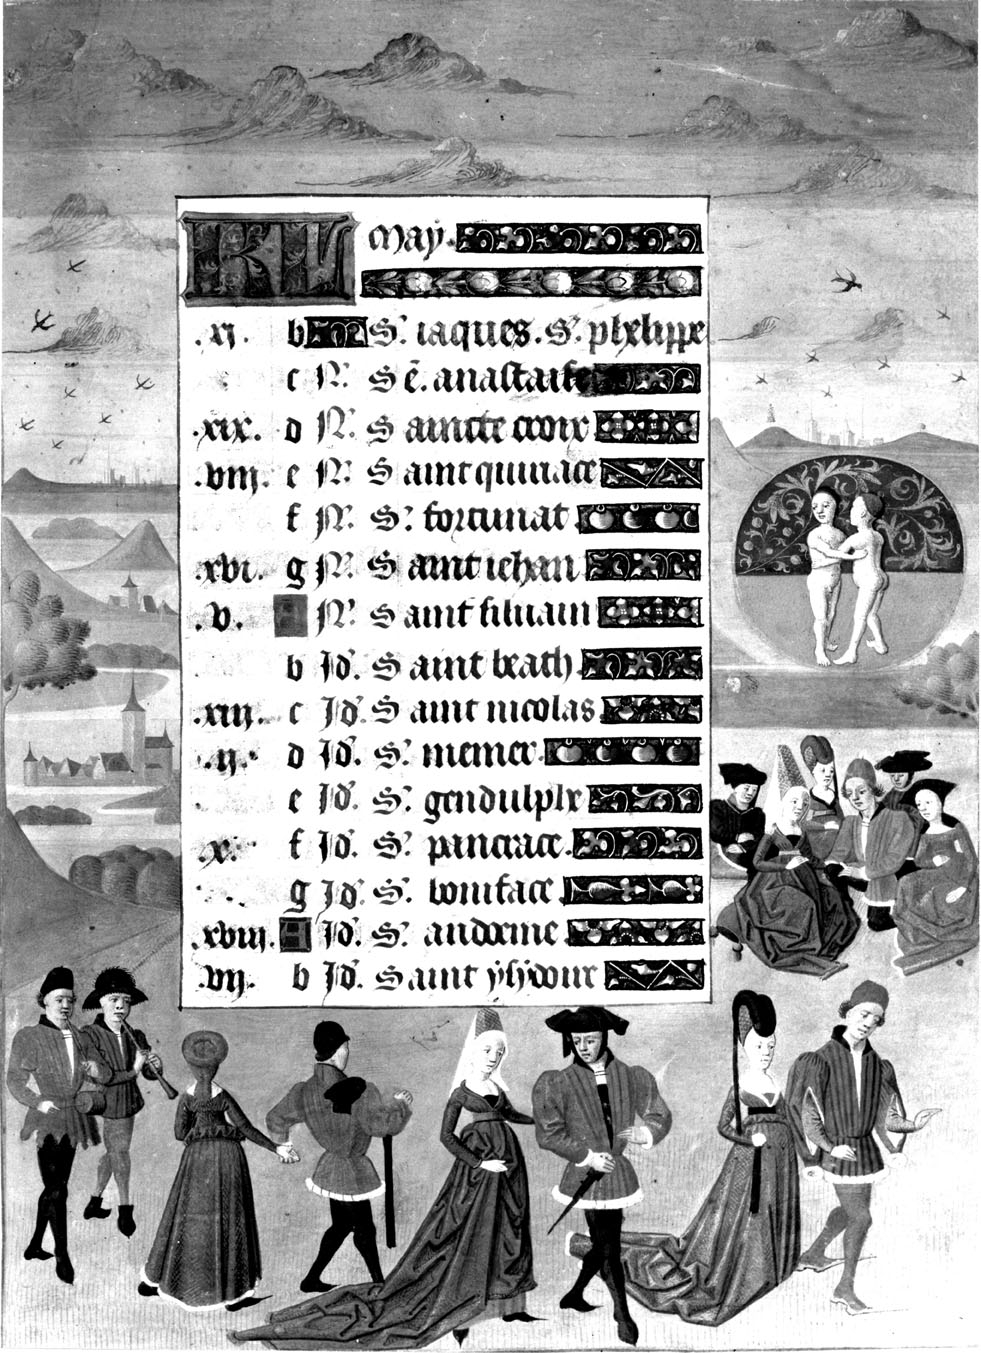 KL May.
.xj. b S'. iaques. S'. phelippe
c N'. S ē. anastaise
.xix. d N'. S aincte croix
.viij. e N'. S aint quiriace
f N'. S'. fortunat
.xvi. g N'. S aint iehan
.v. A N'. S aint siluain
b Jd'. S aint beath
.xiij. c Jd'. S aint nicolas
.ij. d Jd'. S'. memer.
e Jd'. S'. gendulphe
.x. f Jd'. S'. pancrace.
g Jd'. S'. boniface
.xviij. A Jd'. S'.
.vij. b Jd'. S aint ysydour